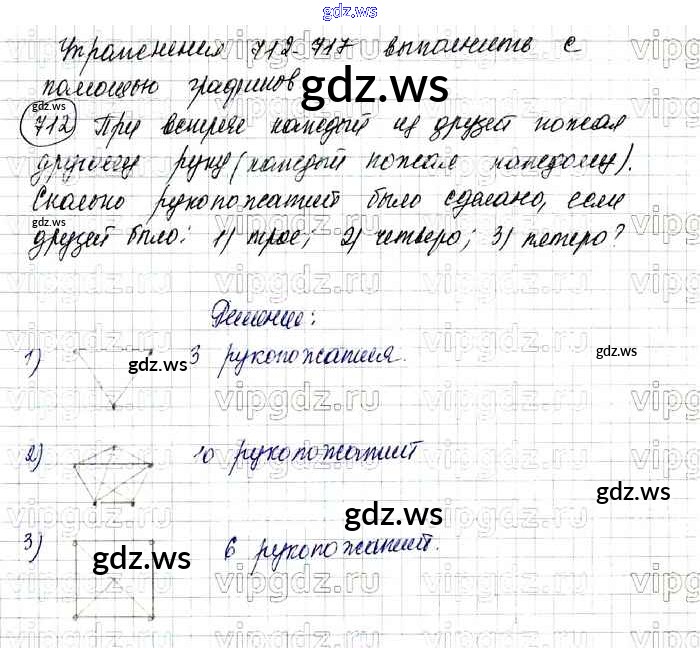 gdz.ws
Упражнения 712-717 выполнить с
помощью графиков
gdz.ws
gdz.ws
712 При встрече каждый из друзей пожал
другому руку (каждый пожал каждому).
Сколько рукопожатий было сделано, если
gdz.ws
друзей было: 1) трое; 2) четверо; 3) пятеро?
Решение:
1) gdz.ws 3 рукопожатия. gdz.ws
2) 10 рукопожатий
3) gdz.ws 6 рукопожатий.
vipgdz.ru
gdz.ws